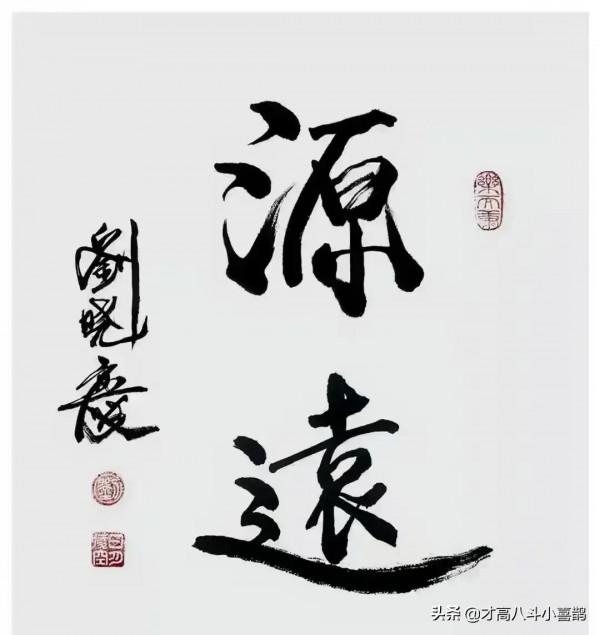 源遠
劉晓慶
头条 @才高八斗小喜鹊